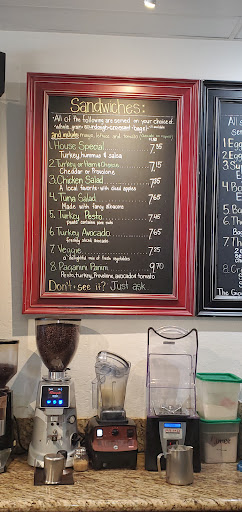 Sandwiches:
All of the following are served on your choice of
whole grain • sourdough • croissant • bagel
and includes mayo, lettuce and tomato
1. House Special 7.35
Turkey, hummus & salsa
2. Turkey or Ham & Cheese 7.
Cheddar or Provolone
3. Chicken Salad 7.35
A local favorite - with diced apples
4. Tuna Salad 7.
Made with fancy albacore
5. Turkey Pesto 7.45
pesto contains pine nuts
6. Turkey Avocado 7.65
freshly sliced avocado
7. Veggie 7.25
a delightful mix of fresh vegetables
8. Paganini Panini 9.70
Pesto, turkey, Provolone, avocado & tomato
Don't see it? Just ask.
All s
1. Eg
2. Eg
3. Su
4. Ba
5. Ba
6.
7. Th
8.
The Go